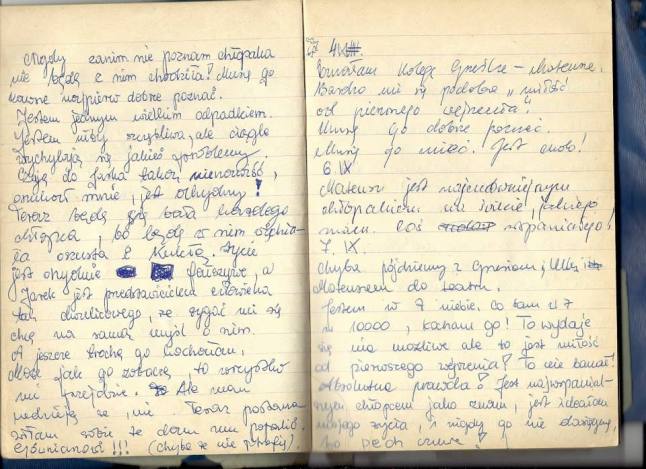 Nigdy zanim nie poznam chłopaka
nie będę z nim chodziła! Muszę go
najpierw dobrze poznać.
Jestem jednym wielkim odpadkiem.
Jestem niby szczęśliwa, ale ciągle
wychylają się jakieś problemy.
Czuję do Jarka taką nienawiść,
mnie, jest ohydny!
Teraz będę się bała każdego
chłopca, bo będę w nim
oszusta i Życie
jest ohydne fałszywe, a
Jarek jest przedstawicielem człowieka
tak że rzygać mi się
chce na samą myśl o nim.
A jeszcze trochę go kochałam,
Może jak go zobaczę, to wszystko
mi przejdzie. Ale mam
nadzieję że nie. Teraz
sobie że dam mu popalić.
!!! (chyba że nie potrafię).
4 IX.
Poznałam kolegę – Mateusza.
Bardzo mi się podoba „miłość
od pierwszego wejrzenia"
Muszę go dobrze poznać.
Muszę go mieć. Jest cudo!
6. IX
Mateusz jest najcudowniejszym
chłopakiem na świecie, jakiego
znam. Coś wspaniałego!
7. IX.
Chyba pójdziemy z i
Mateuszem do teatru.
Jestem w 7 niebie, co tam w 7
w 10000, kocham go! To wydaje
się nie możliwe ale to jest miłość
od pierwszego wejrzenia! To nie banał!
Absolutna prawda! Jest najwspanial-
szym chłopcem jako znam, jest ideałem
mojego życia, i nigdy go nie
bo pech czuwa!